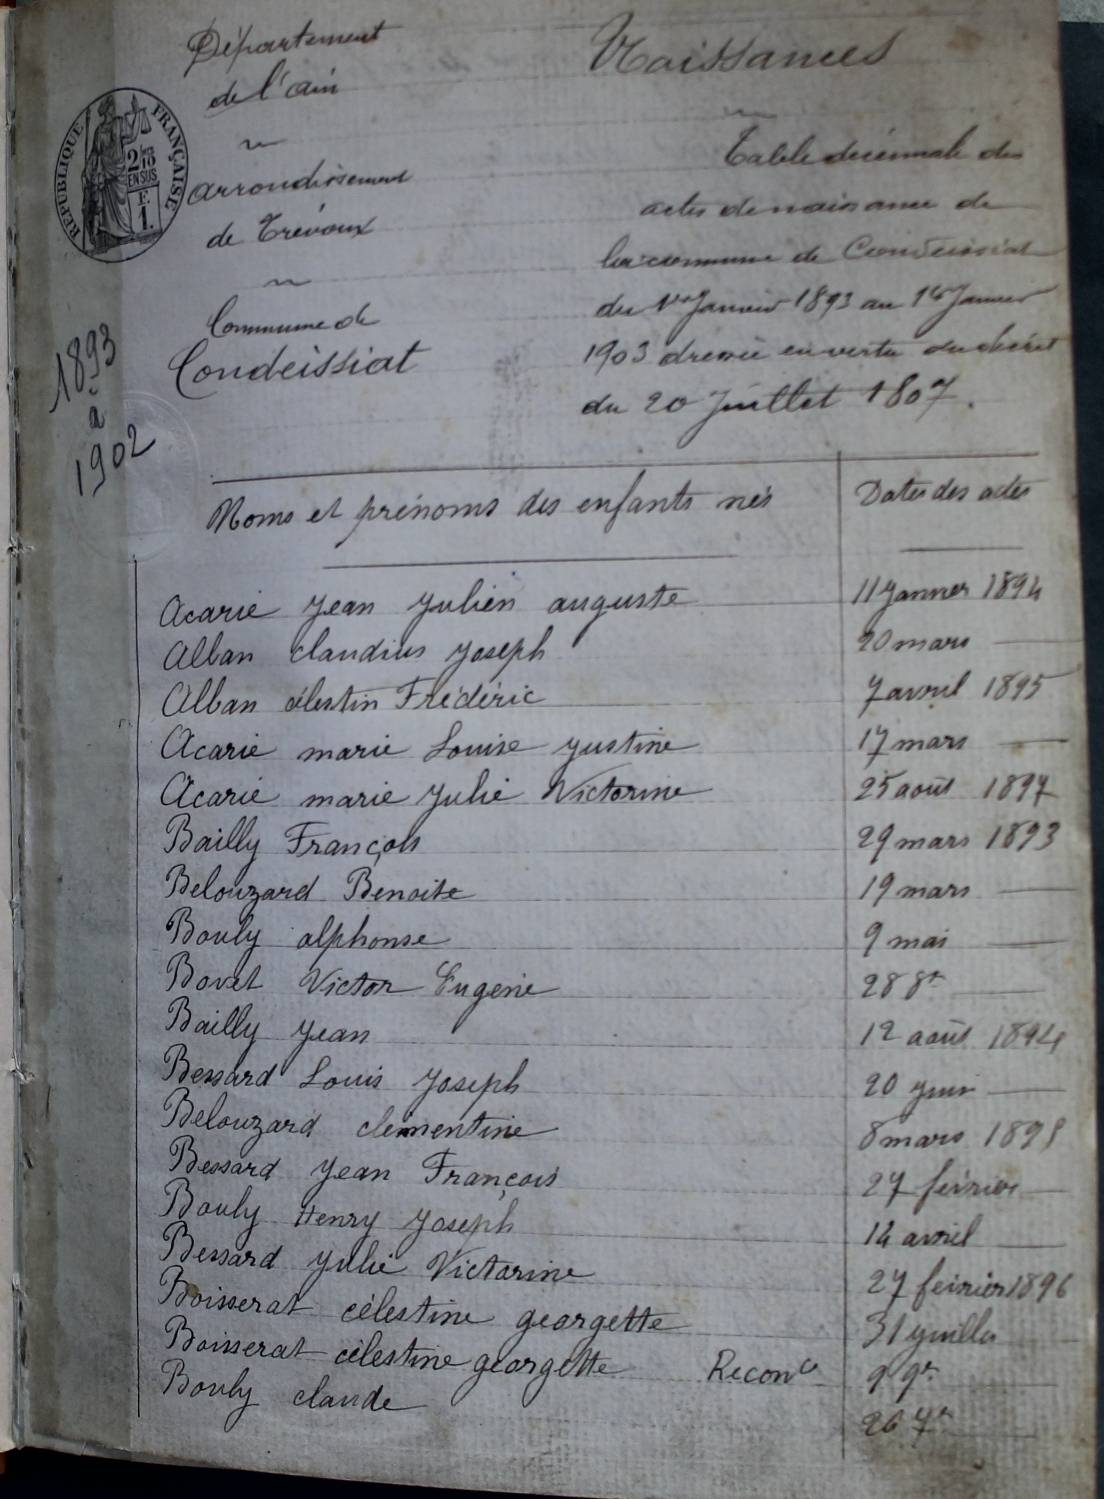 Département
de l'ain
arrondissement
de Trévoux
Commune de
Condeissiat
RÉPUBLIQUE FRANÇAISE
2/10
EN SUS
F.
1.
1893
à
1902
Naissances
Table décennale des
actes de naissance de
la commune de Condeissiat
du 1er Janvier 1893 au 1er Janvier
1903 dressée en vertu du décret
du 20 Juillet 1807.
Noms et prénoms des enfants nés Dates des actes
Acarie Jean Julien auguste 11 Janvier 1894
Alban claudius Joseph 20 mars —
Alban célestin Frédéric 7 avril 1895
Acarie marie Louise Justine 17 mars —
Acarie marie Julie Victorine 25 août 1897
Bailly François 29 mars 1893
Belouzard Benoite 19 mars —
Bouly alphonse 9 mai —
Bovet Victor Eugène 28 8r —
Bailly Jean 12 août 1894
Bessard Louis Joseph 20 juin —
Belouzard clémentine 8 mars 1895
Bessard Jean François 27 février —
Bouly Henry Joseph 14 avril —
Bessard Julie Victorine 27 février 1896
Boisserat célestine georgette 31 juillet —
Boisserat célestine georgette Reconce 9 9r —
Bouly claude 26 7r —